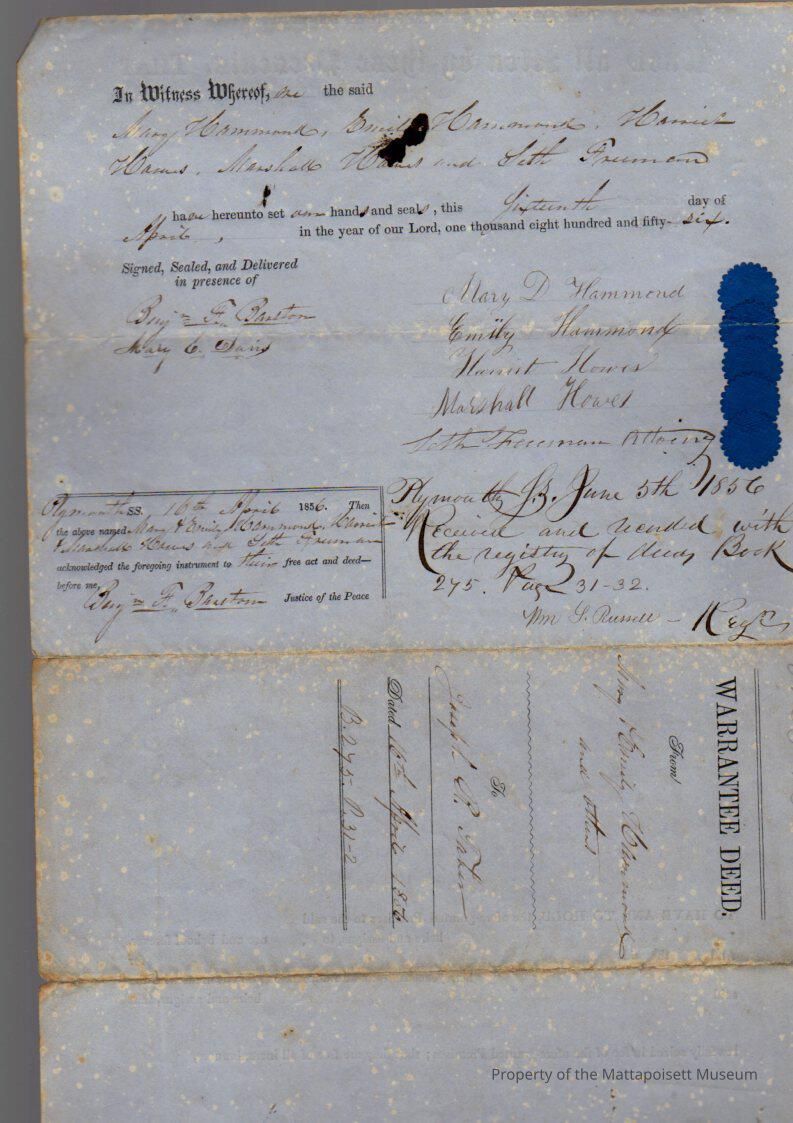 In Witness Whereof, we the said
Mary Hammond, Emily Hammond, Harriet
Howes, Marshall Howes and Seth Freeman
have hereunto set our hands and seals, this Sixteenth day of
April, in the year of our Lord, one thousand eight hundred and fifty-six.
Signed, Sealed, and Delivered
in presence of
Benj= F. Barstow
Mary C. Davis
Mary D Hammond
Emily Hammond
Harriet Howes
Marshall Howes
Seth Freeman Attorney
Plymouth SS. 16th April 1856. Then
the above named Mary & Emily Hammond, Harriet
& Marshall Howes and Seth Freeman
acknowledged the foregoing instrument to their free act and deed—
before me,
Benj= F. Barstow Justice of the Peace
Plymouth SS. June 5th 1856
Received and recorded with
the registry of deeds Book
275. Page 31-32.
Wm S. Russell - Regr
WARRANTEE DEED.
From
Mary & Emily Hammond
and others
To
Joseph R.
Dated 16th April 1856
B. 275. P. 31-2
TO HAVE AND TO HOLD
Property of the Mattapoisett Museum